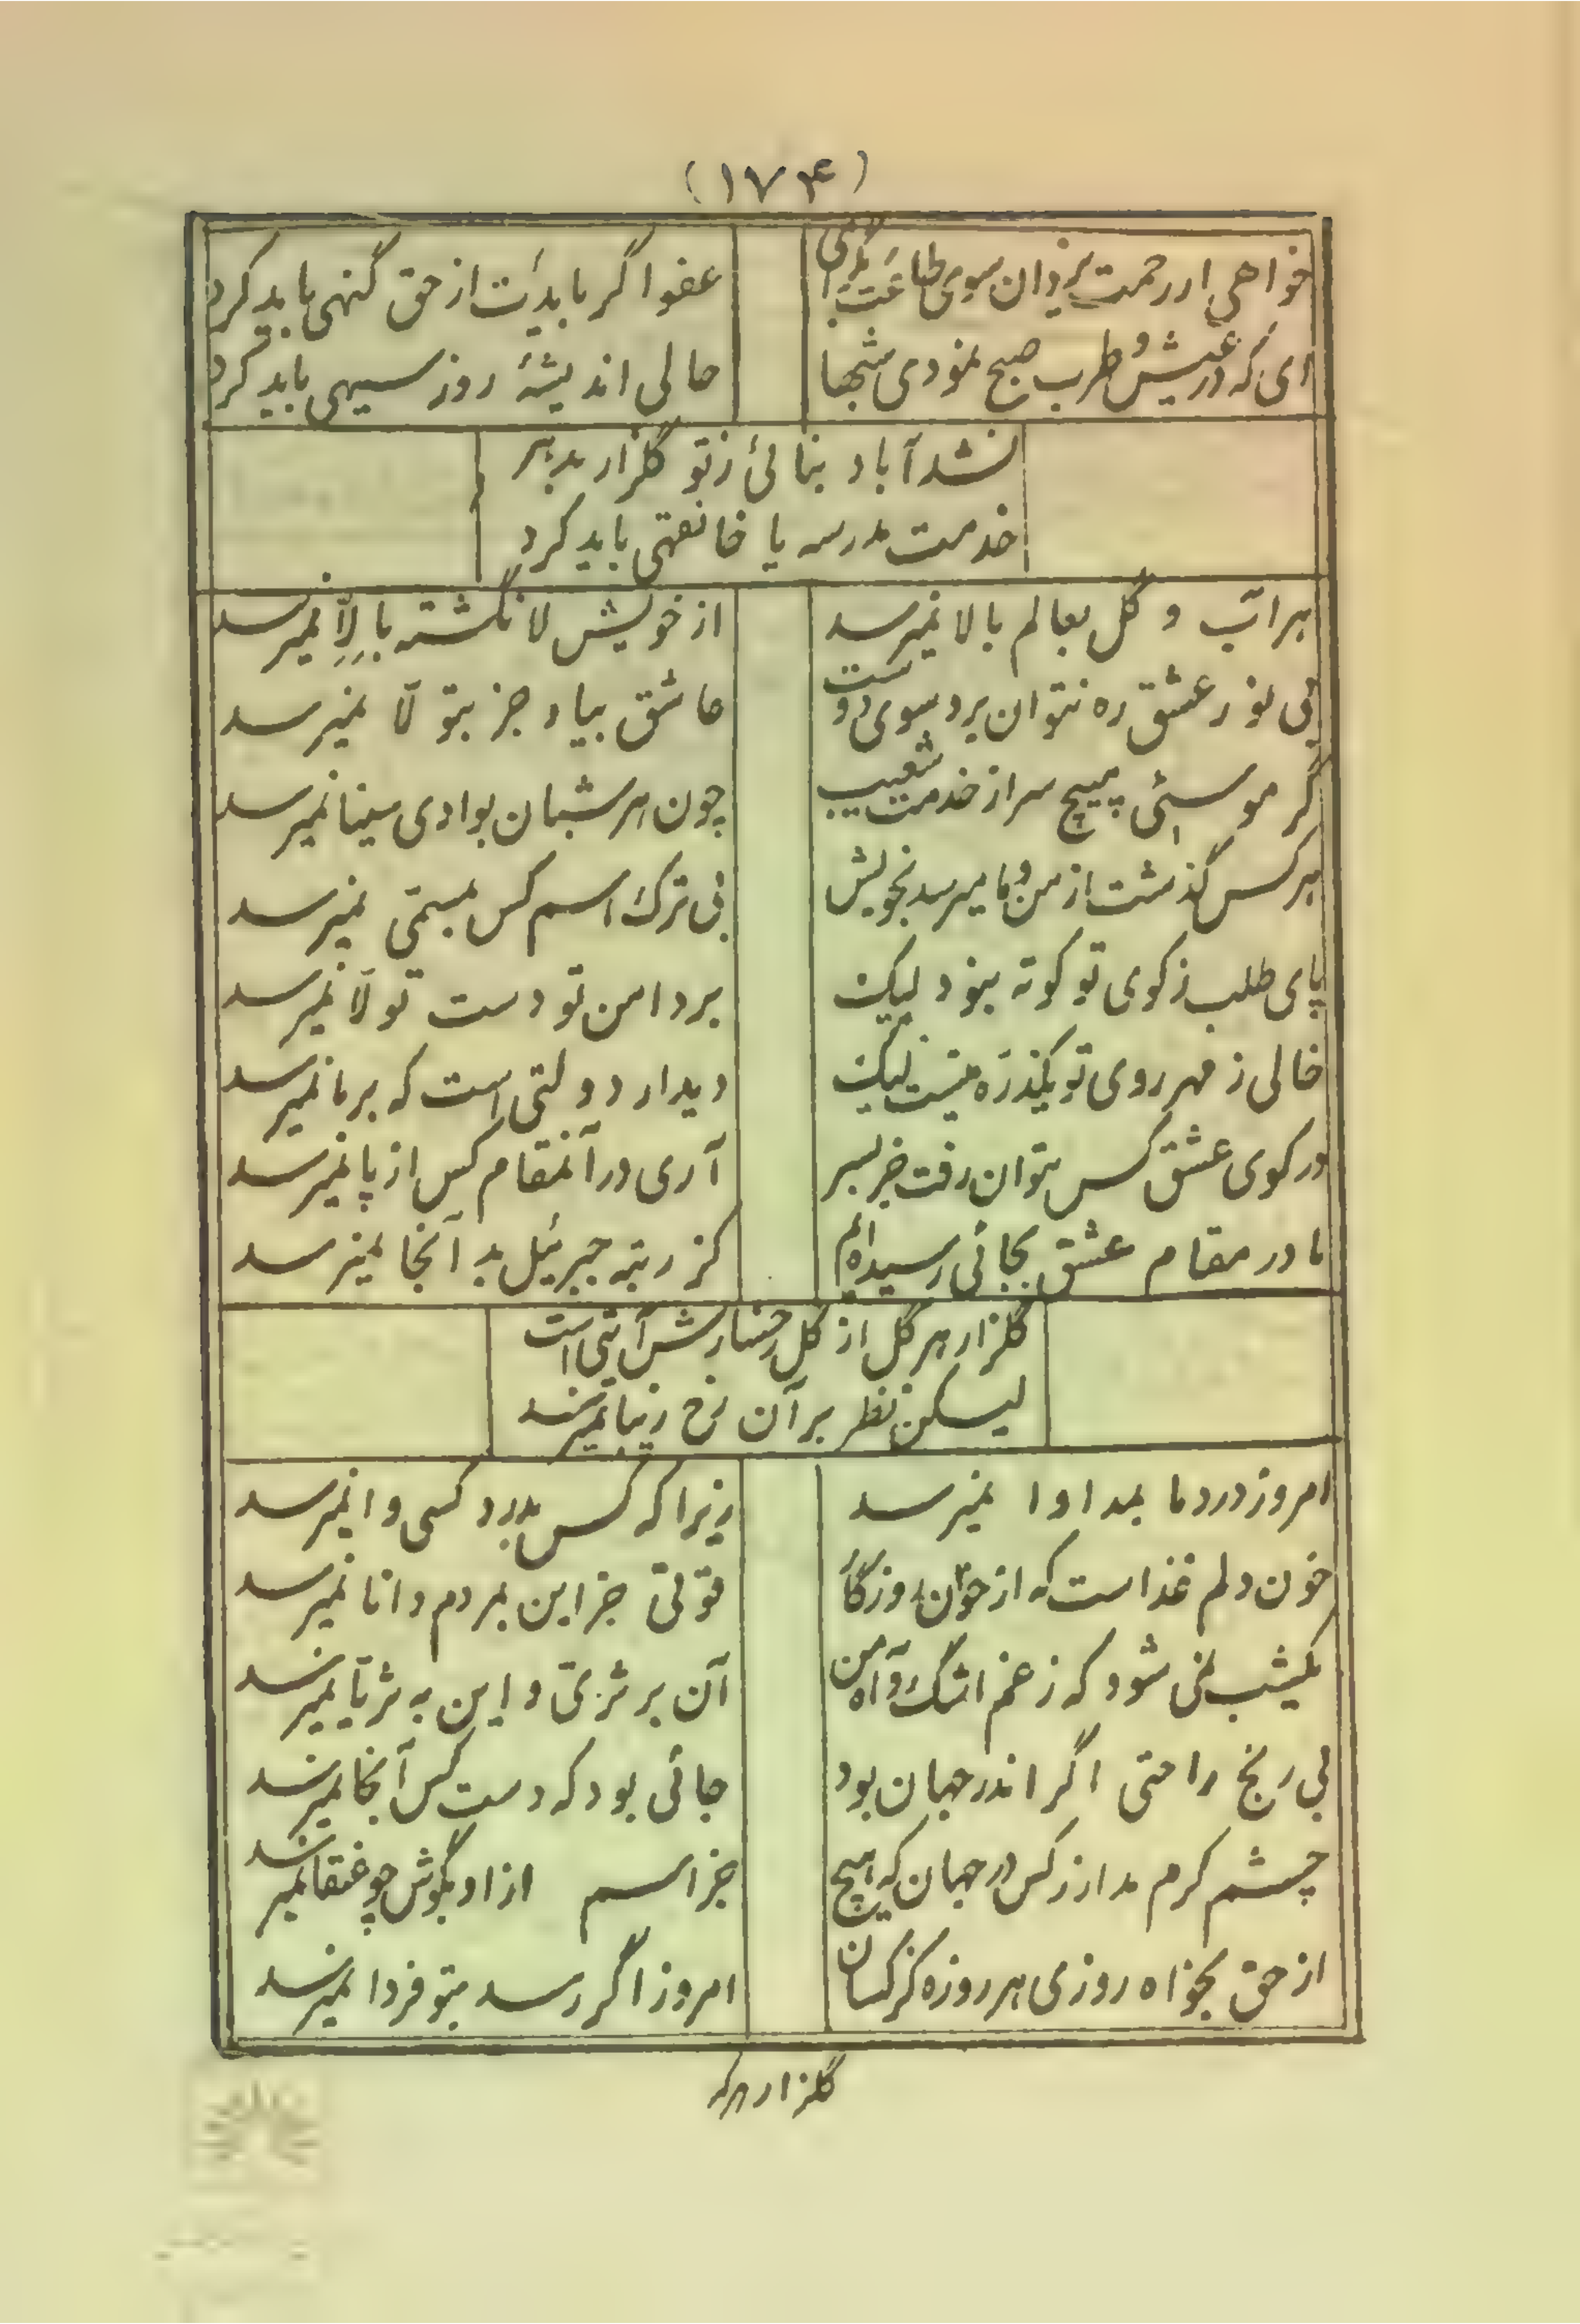 (۱۷۴)
خواهی ار رحمت یزدان سوی طاعت بگرای
عفو اگر بایدت از حق گنهی باید کرد
ای که در عیش و طرب صبح نمودی شبها
حالی اندیشهٔ روز سیهی باید کرد
نشد آباد بنائی ز تو گلزار بدهر
خدمت مدرسه یا خانقهی باید کرد
هر آب و گل بعالم بالا نمیرسد
از خویش لا نگشته بالّا نمیرسد
بی نور عشق ره نتوان برد سوی دوست
عاشق بیاد جز بتولّا نمیرسد
گر موسئی مپیچ سر از خدمت شعیب
چون هر شبان بوادی سینا نمیرسد
هر کس گذشت از من و ما میرسد بخویش
بی ترک اسم کس بمسمّی نمیرسد
پای طلب ز کوی تو کوته نبود لیک
بر دامن تو دست تولّا نمیرسد
خالی ز مهر روی تو یکذرّه نیست لیک
دیدار دولتی است که بر ما نمیرسد
در کوی عشق کس نتوان رفت جز بسر
آری در آنمقام کس از پا نمیرسد
ما در مقام عشق بجائی رسیده‌ایم
کز رتبه جبرئیل بد آنجا نمیرسد
گلزار هر گل از گل رخسارش آیتی است
لیکن نظر بر آن رخ زیبا نمیرسد
امروز درد ما بمداوا نمیرسد
زیرا که کس بدرد کسی وا نمیرسد
خون دلم غذاست که از خوان روزگار
قوتی جز این بمردم دانا نمیرسد
یکشب نمی شود که ز غم اشک و آه من
آن بر ثری و این به ثریّا نمیرسد
بی رنج راحتی اگر اندر جهان بود
جائی بود که دست کس آنجا نمیرسد
چشم کرم مدار ز کس در جهان که هیچ
جز اسم از او بگوش چو عنقا نمیرسد
از حق بخواه روزی هر روزه کز کسان
امروز اگر رسد بتو فردا نمیرسد
گلزار هر که